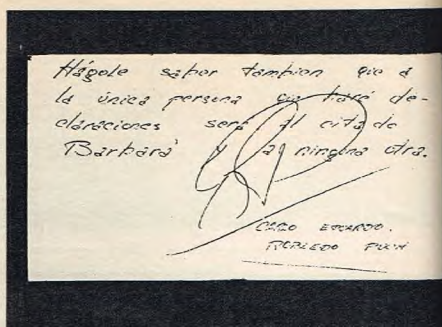 Hágole saber tambien que a
la única persona que haré de-
claraciones será al citado
Barbará y a ninguna otra.
CARLOS EDUARDO.
ROBLEDO PUCH